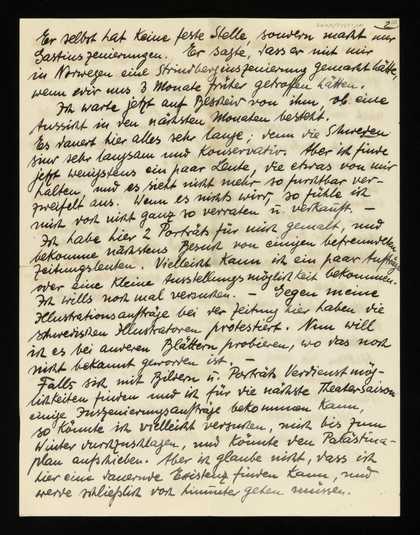 2
Er selbst hat keine feste Stelle, sondern macht nur
Gastinszenierungen. Er sagte, dass er mit mir
in Norwegen eine Strindberginszenierung gemacht hätte,
wenn wir uns 3 Monate früher getroffen hätten.
Ich warte jetzt auf Bescheid von ihm, ob eine
Aussicht in den nächsten Monaten besteht.
Es dauert hier alles sehr lange, denn die Schweden
sind sehr langsam und konservativ. Aber ich finde
jetzt wenigstens ein paar Leute, die etwas von mir
halten, und es sieht nicht mehr so furchtbar ver-
zweifelt aus. Wenn es nichts wird, so fühle ich
mich doch nicht ganz so verraten u. verkauft. –
Ich habe hier 2 Porträts für mich gemalt, und
bekomme nächstens Besuch von einigen befreundeten
Zeitungsleuten. Vielleicht kann ich ein paar Aufträge
oder eine kleine Ausstellungsmöglichkeit bekommen.
Ich wills noch mal versuchen. – Gegen meine
Illustrationsaufträge bei der Zeitung hier haben die
schwedischen Illustratoren protestiert. Nun will
ich es bei anderen Blättern probieren, wo das noch
nicht bekannt geworden ist. –
Falls sich mit Bildern u. Porträts Verdienstmög-
lichkeiten finden und ich für die nächste Theatersaison
einige Inszenierungsaufträge bekommen kann,
so könnte ich vielleicht versuchen, mich bis zum
Winter durchzuschlagen, und könnte den Palästina-
plan aufschieben. Aber ich glaube nicht, dass ich
hier eine dauernde Existenz finden kann, und
werde schließlich doch hinunter gehen müssen.